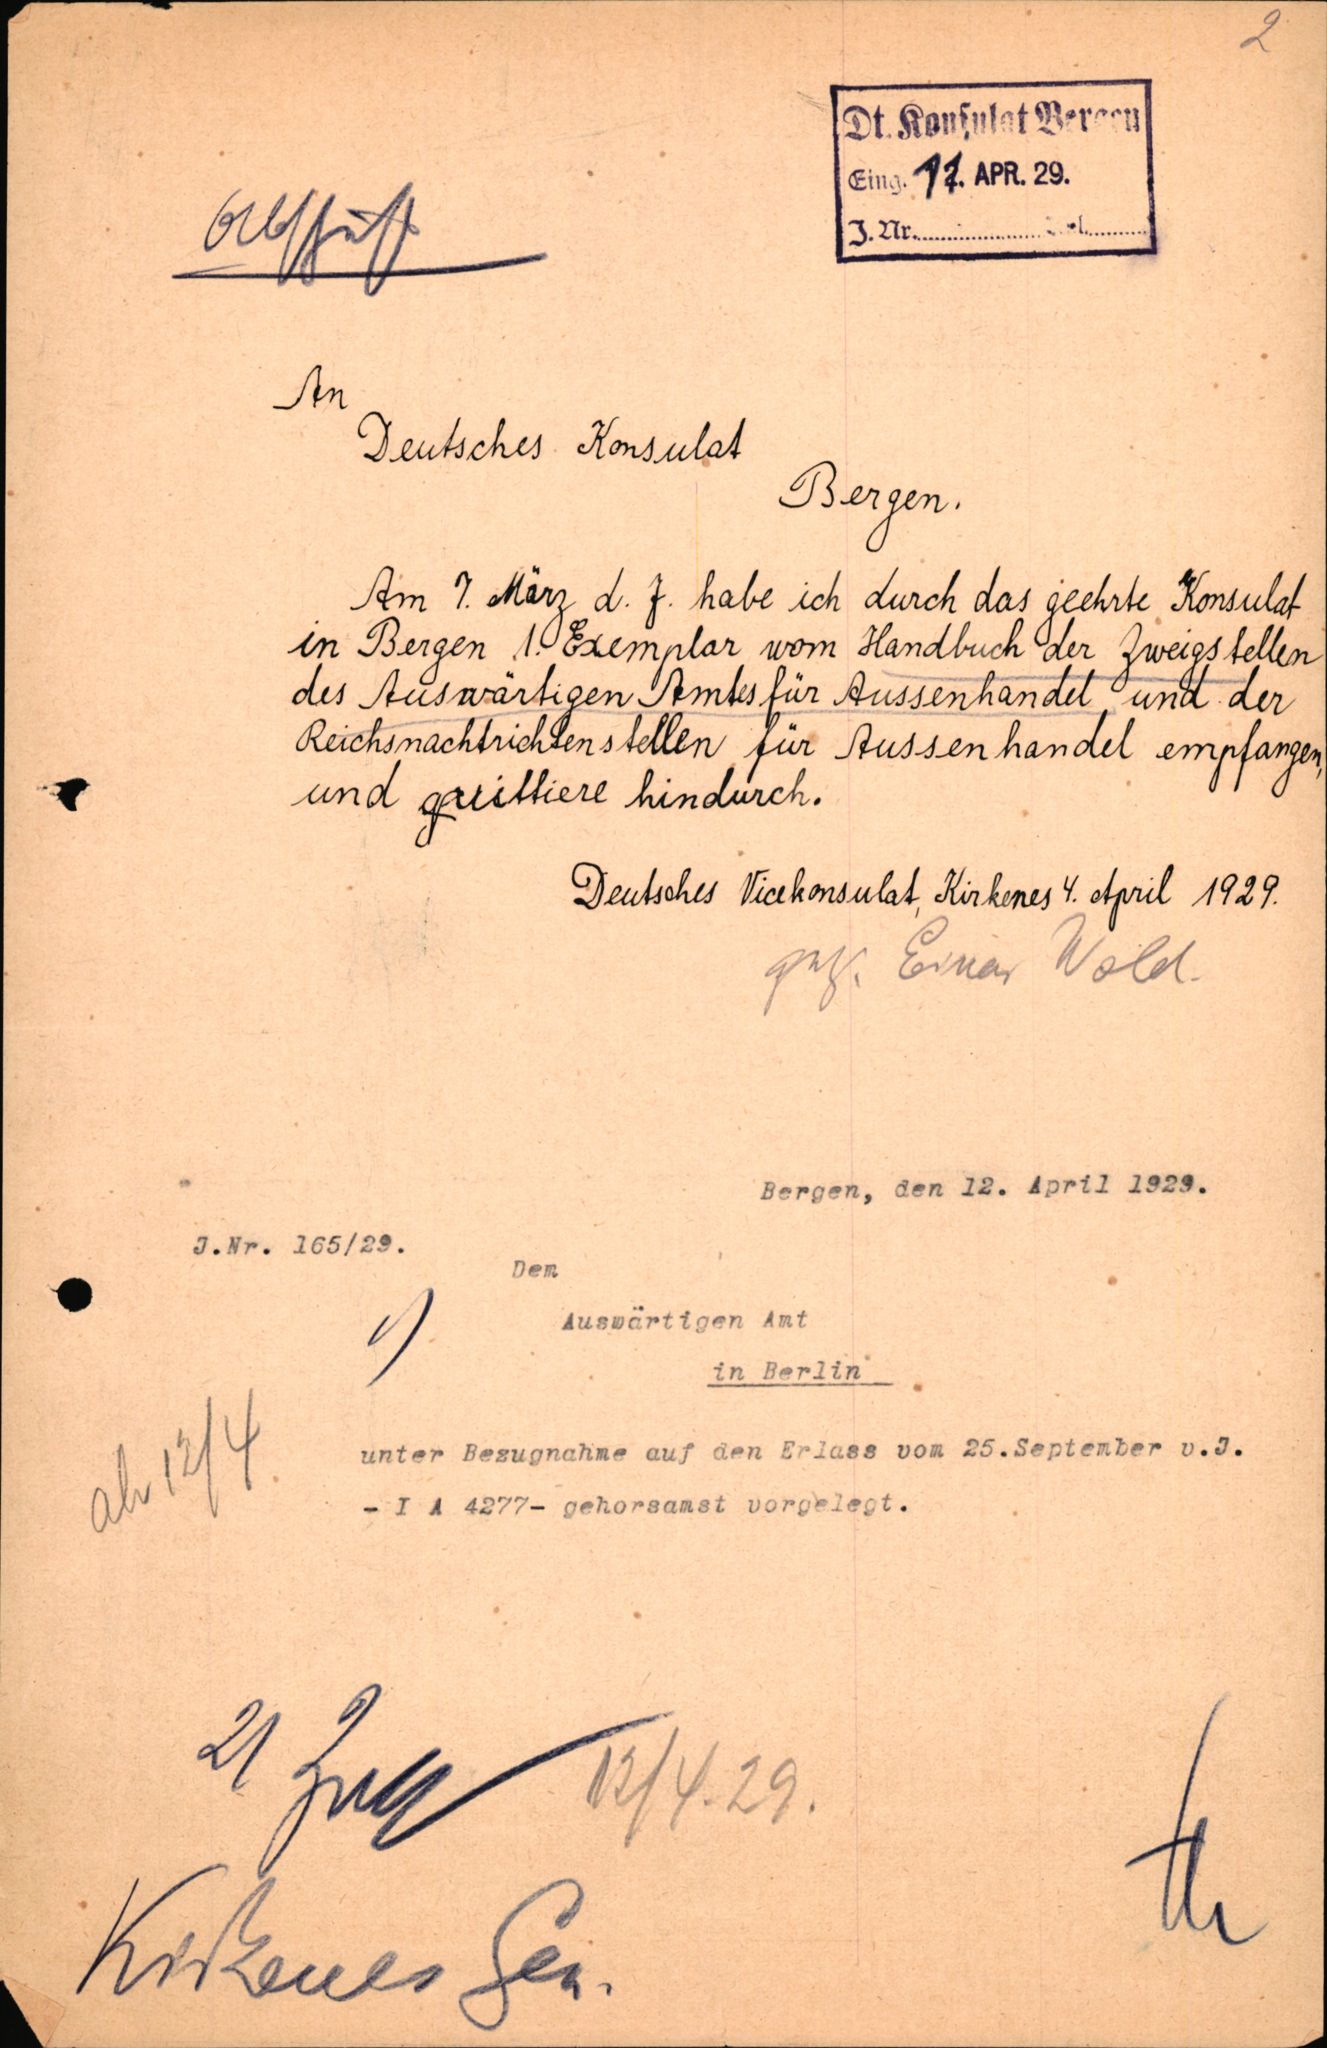 2
Dt. Konsulat Bergen
Eing. 12. APR. 29.
J. Nr.
Abschrift
An
Deutsches Konsulat
Bergen.
Am 7. März d. J. habe ich durch das geehrte Konsulat
in Bergen 1. Exemplar wom Handbuch der Zweigstellen
des Auswärtigen Amtes für Aussenhandel und der
Reichsnachtrichtenstellen für Aussenhandel empfangen,
und quittiere hindurch.
Deutsches Vicekonsulat, Kirkenes 4. April 1929.
gez. Einar Wold.
Bergen, den 12. April 1929.
J.Nr. 165/29.
Dem
1)
Auswärtigen Amt
in Berlin
ab 12/4
unter Bezugnahme auf den Erlass vom 25.September v.J.
- I A 4277- gehorsamst vorgelegt.
2)
12/4.29.
Kirkenes Gen.